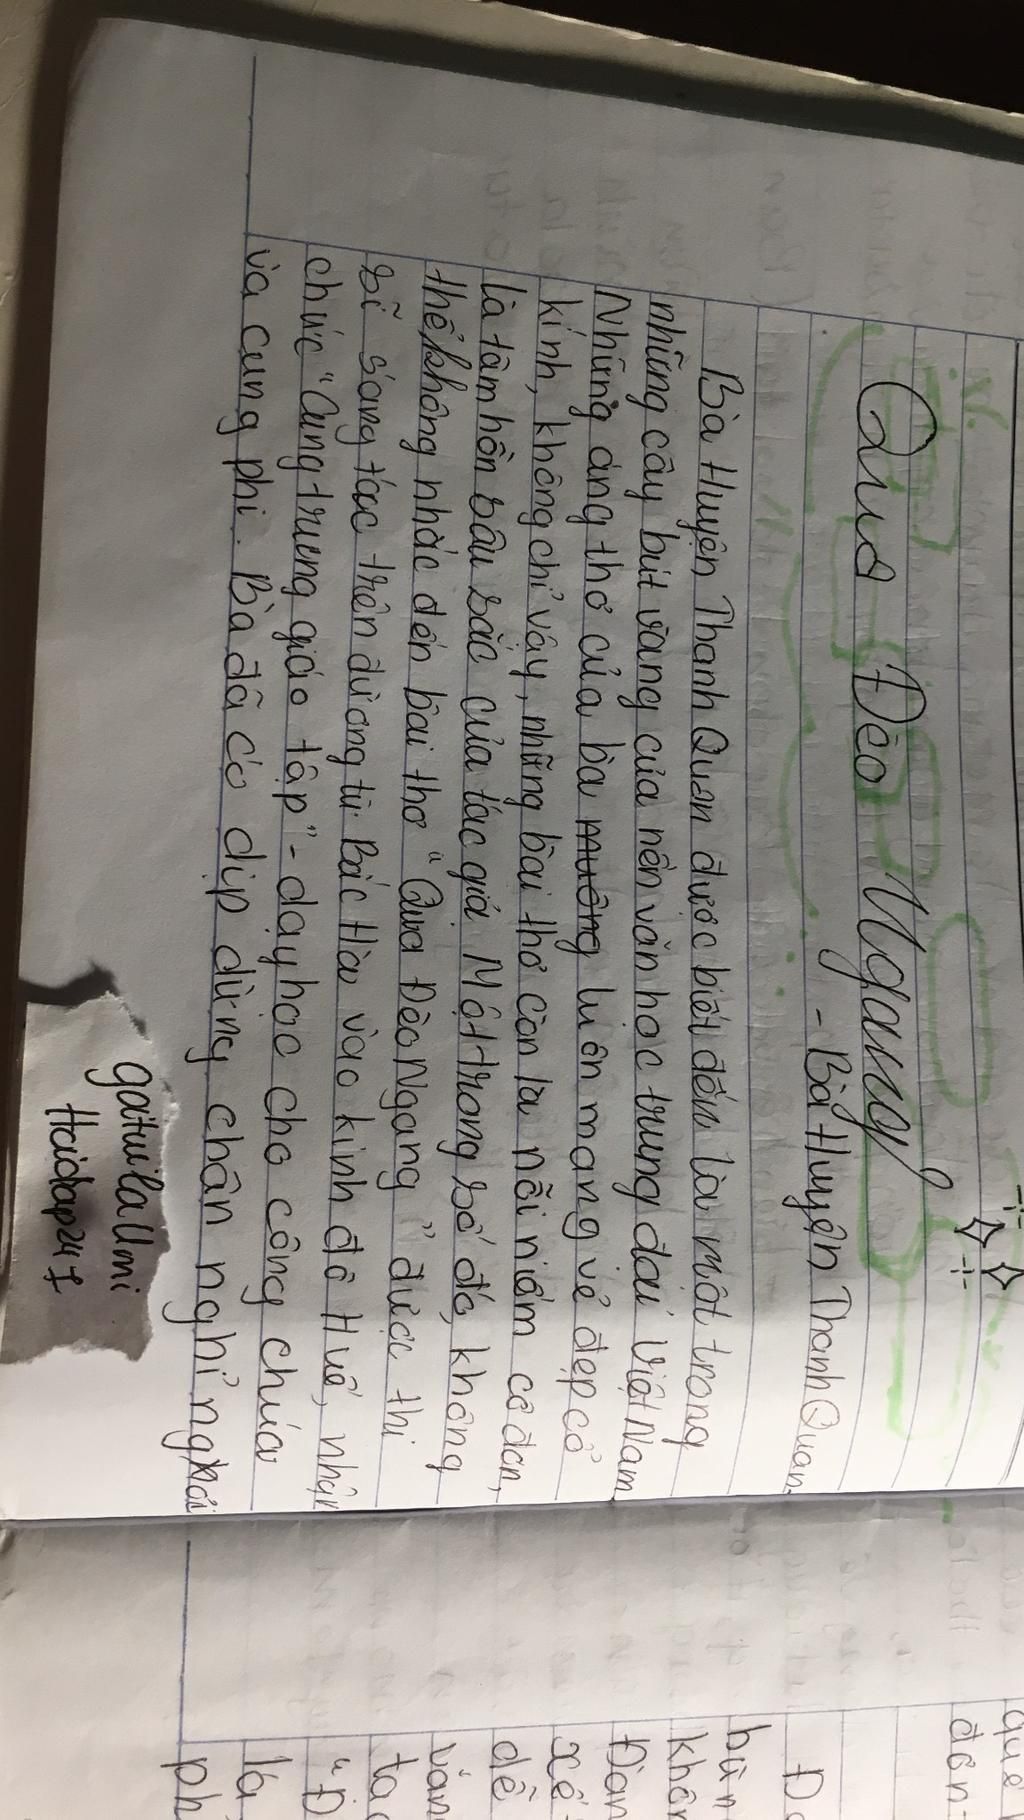 Qua Đèo Ngang
- Bà Huyện Thanh Quan.
Bà Huyện Thanh Quan được biết đến là một trong
những cây bút vàng của nền văn học trung đại Việt Nam.
Những áng thơ của bà muông luôn mang vẻ đẹp cổ
kính, không chỉ vậy, những bài thơ còn là nỗi niềm cô đơn,
là tâm hồn sâu sắc của tác giả. Một trong số đó, không
thể không nhắc đến bài thơ "Qua Đèo Ngang" được thi
sĩ sáng tác trên đường từ Bắc Hà vào kinh đô Huế, nhận
chức "Cung trung giáo tập" - dạy học cho công chúa
và cung phi. Bà đã có dịp dừng chân nghỉ ngơi
gaituilallmi
Haidap247
quê
đôn
Đ
bùn
khôn
Đàn
xế
dễ
văn
tá
"Đ
lá
ph